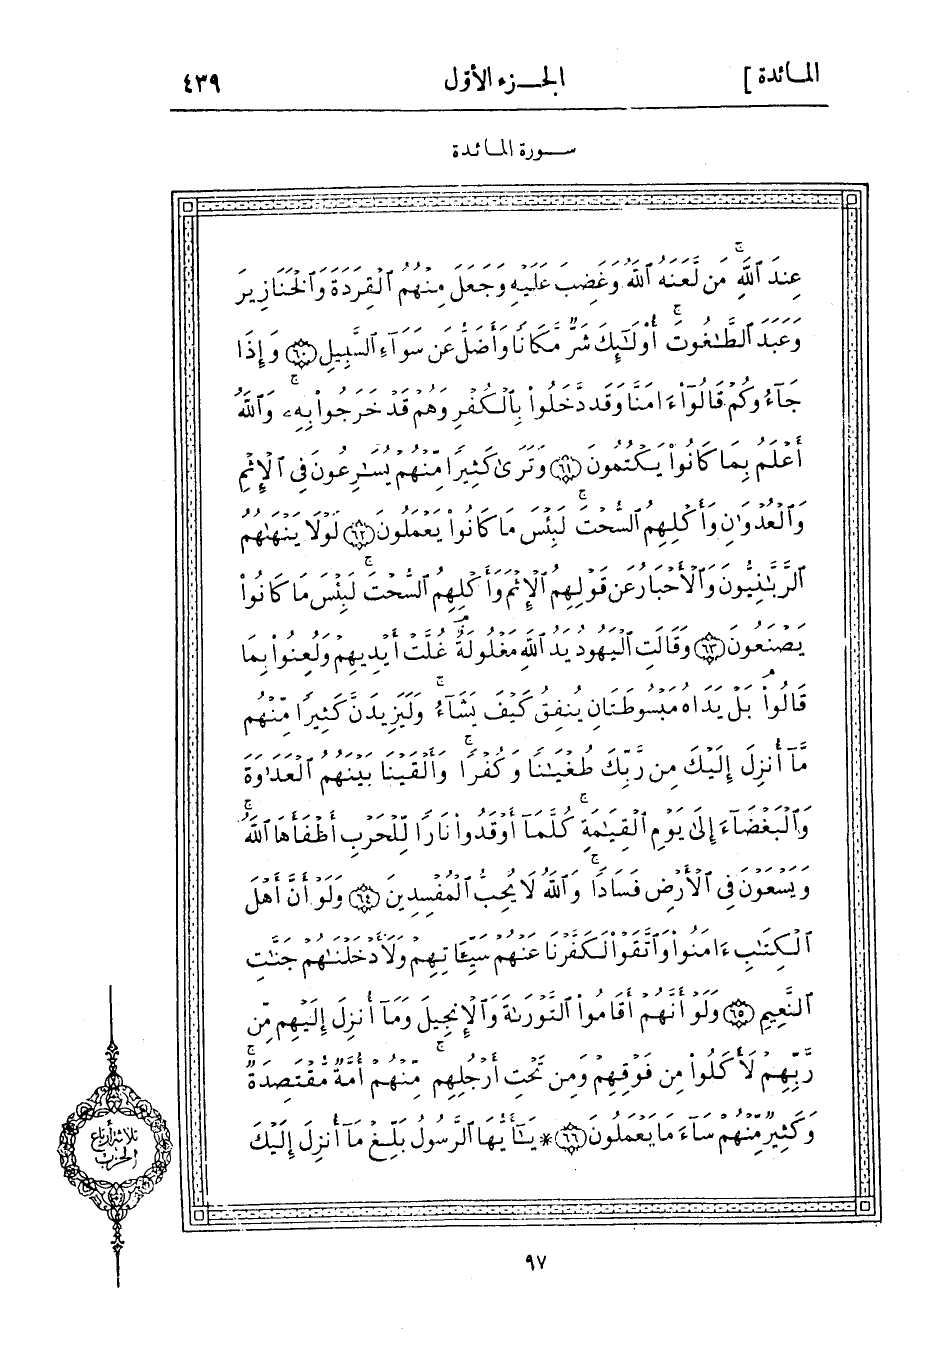 المائدة ]
الجزء الأول
٤٣٩
سورة المائدة
عِندَ ٱللَّهِۚ مَن لَّعَنَهُ ٱللَّهُ وَغَضِبَ عَلَيْهِ وَجَعَلَ مِنْهُمُ ٱلْقِرَدَةَ وَٱلْخَنَازِيرَ
وَعَبَدَ ٱلطَّـٰغُوتَۚ أُوْلَـٰٓئِكَ شَرٌّ مَّكَانًا وَأَضَلُّ عَن سَوَآءِ ٱلسَّبِيلِ ٦٠ وَإِذَا
جَآءُوكُمْ قَالُوٓاْ ءَامَنَّا وَقَد دَّخَلُواْ بِٱلْكُفْرِ وَهُمْ قَدْ خَرَجُواْ بِهِۦۚ وَٱللَّهُ
أَعْلَمُ بِمَا كَانُواْ يَكْتُمُونَ ٦١ وَتَرَىٰ كَثِيرًا مِّنْهُمْ يُسَـٰرِعُونَ فِى ٱلْإِثْمِ
وَٱلْعُدْوَٰنِ وَأَكْلِهِمُ ٱلسُّحْتَۚ لَبِئْسَ مَا كَانُواْ يَعْمَلُونَ ٦٢ لَوْلَا يَنْهَىٰهُمُ
ٱلرَّبَّـٰنِيُّونَ وَٱلْأَحْبَارُ عَن قَوْلِهِمُ ٱلْإِثْمَ وَأَكْلِهِمُ ٱلسُّحْتَۚ لَبِئْسَ مَا كَانُواْ
يَصْنَعُونَ ٦٣ وَقَالَتِ ٱلْيَهُودُ يَدُ ٱللَّهِ مَغْلُولَةٌۚ غُلَّتْ أَيْدِيهِمْ وَلُعِنُواْ بِمَا
قَالُواْۘ بَلْ يَدَاهُ مَبْسُوطَتَانِ يُنفِقُ كَيْفَ يَشَآءُۚ وَلَيَزِيدَنَّ كَثِيرًا مِّنْهُم
مَّآ أُنزِلَ إِلَيْكَ مِن رَّبِّكَ طُغْيَـٰنًا وَكُفْرًاۚ وَأَلْقَيْنَا بَيْنَهُمُ ٱلْعَدَاوَةَ
وَٱلْبَغْضَآءَ إِلَىٰ يَوْمِ ٱلْقِيَـٰمَةِۚ كُلَّمَآ أَوْقَدُواْ نَارًا لِّلْحَرْبِ أَطْفَأَهَا ٱللَّهُۚ
وَيَسْعَوْنَ فِى ٱلْأَرْضِ فَسَادًاۚ وَٱللَّهُ لَا يُحِبُّ ٱلْمُفْسِدِينَ ٦٤ وَلَوْ أَنَّ أَهْلَ
ٱلْكِتَـٰبِ ءَامَنُواْ وَٱتَّقَوْاْ لَكَفَّرْنَا عَنْهُمْ سَيِّـَٔاتِهِمْ وَلَأَدْخَلْنَـٰهُمْ جَنَّـٰتِ
ٱلنَّعِيمِ ٦٥ وَلَوْ أَنَّهُمْ أَقَامُواْ ٱلتَّوْرَىٰةَ وَٱلْإِنجِيلَ وَمَآ أُنزِلَ إِلَيْهِم مِّن
رَّبِّهِمْ لَأَكَلُواْ مِن فَوْقِهِمْ وَمِن تَحْتِ أَرْجُلِهِمۚ مِّنْهُمْ أُمَّةٌ مُّقْتَصِدَةٌۚ
وَكَثِيرٌ مِّنْهُمْ سَآءَ مَا يَعْمَلُونَ ٦٦ * يَـٰٓأَيُّهَا ٱلرَّسُولُ بَلِّغْ مَآ أُنزِلَ إِلَيْكَ
ثلاثة أرباع
الحزب
٩٧